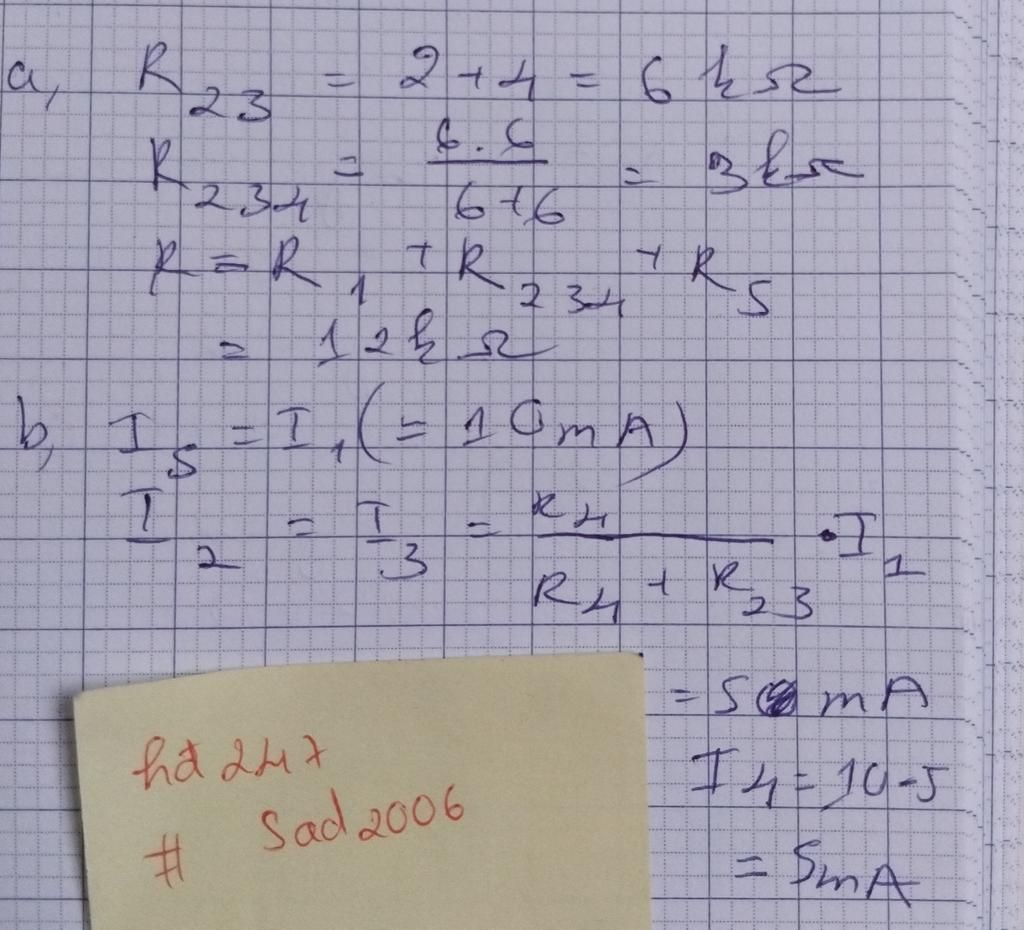 a, R23 = 2+4 = 6 kΩ
R234 = 6.6/6+6 = 3kΩ
R = R1 + R234 + R5
= 12kΩ
b, I5 = I1 (= 10mA)
I2 = I3 = R4/R4 + R23 • I1
= 5 mA
I4 = 10-5
= 5mA
hd 247
# Sad2006